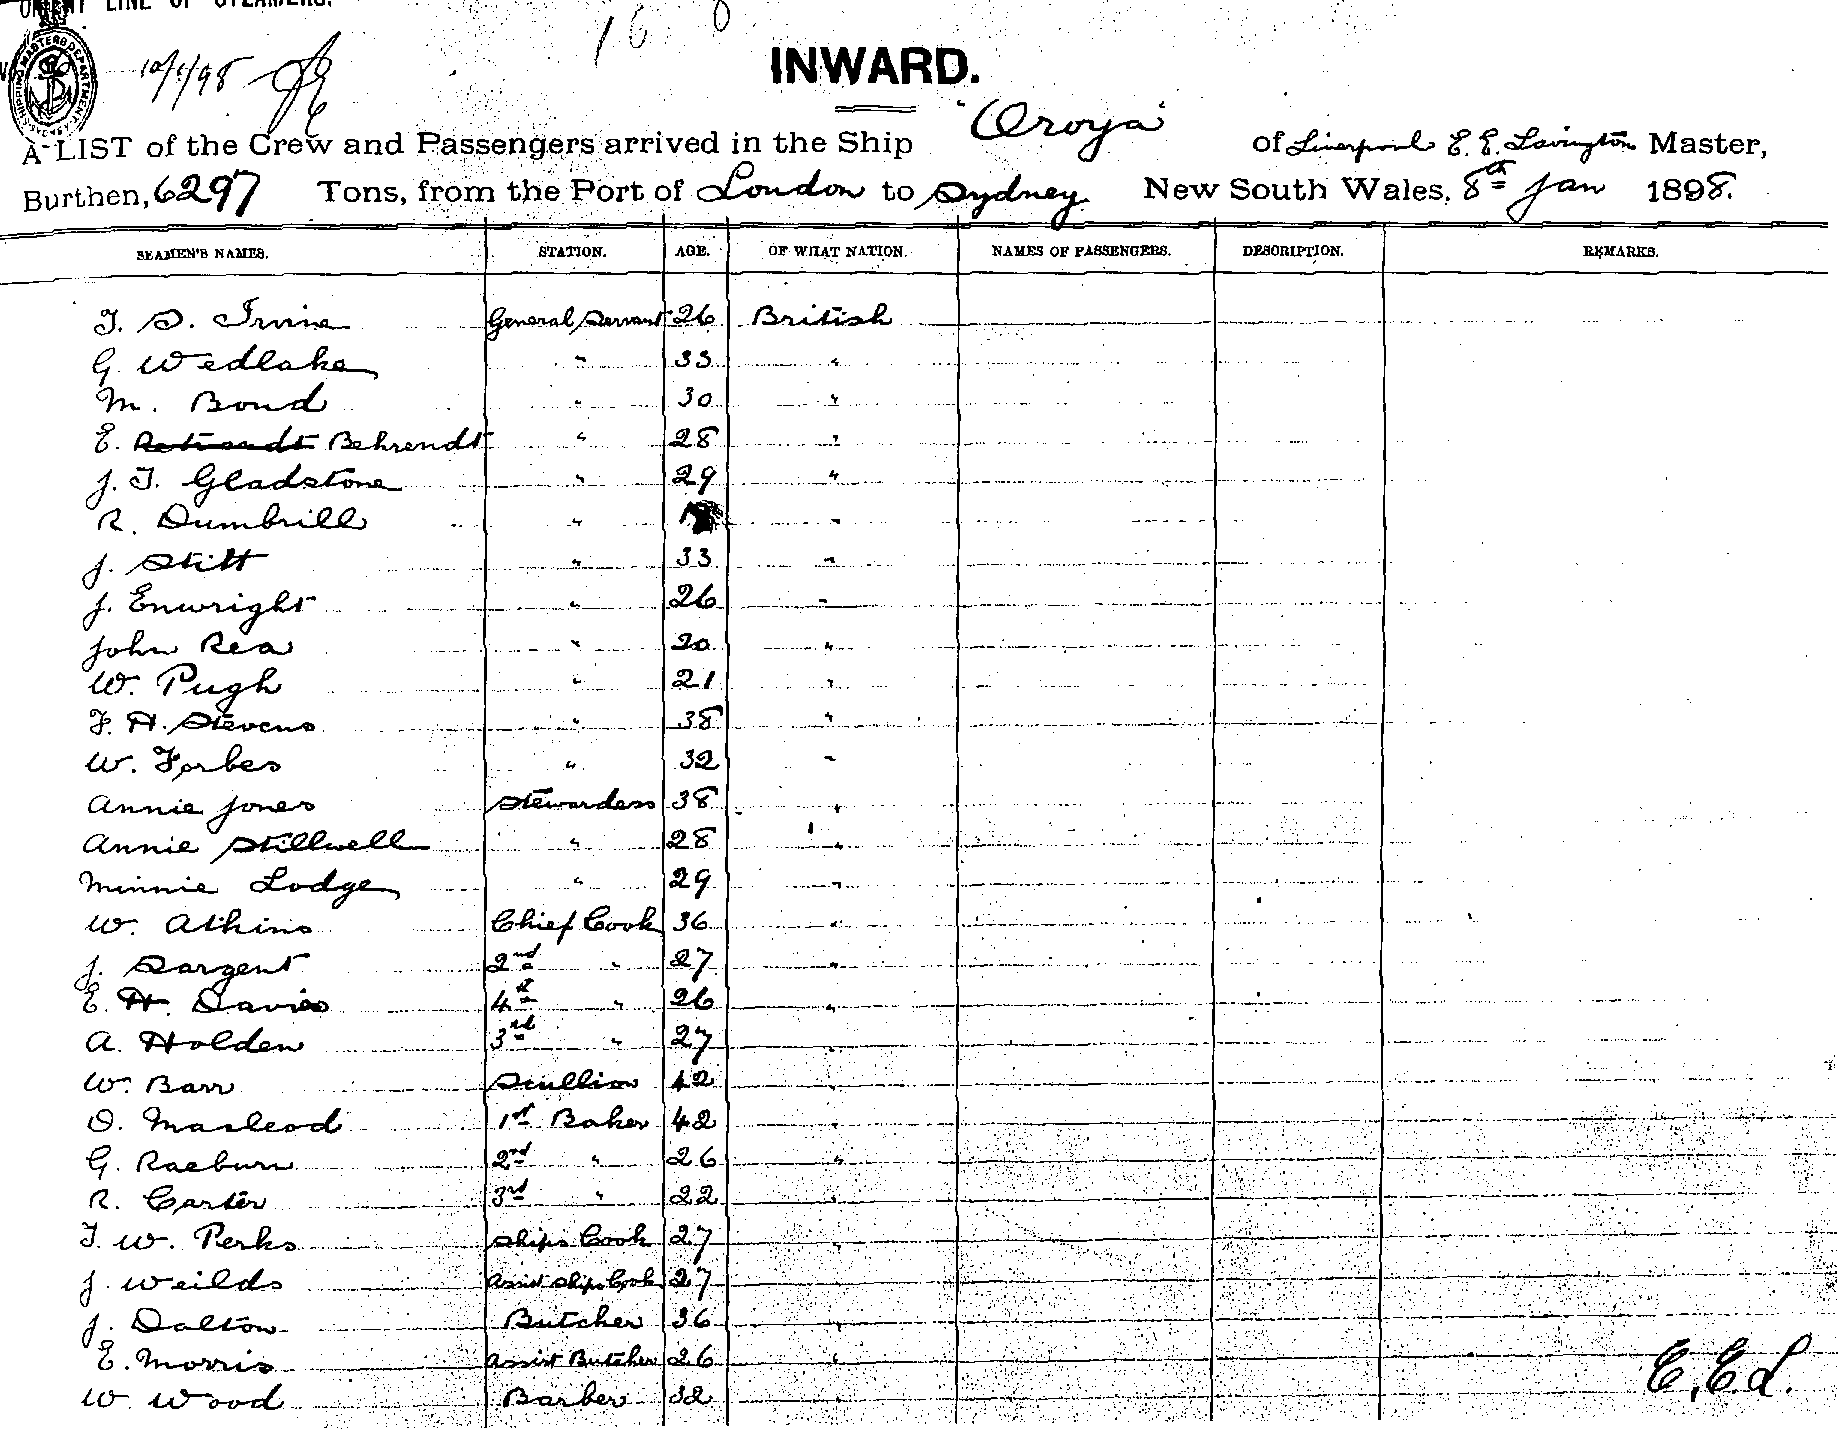 ORIENT LINE OF STEAMERS.
SHIPPING MASTERS DEPARTMENT SYDNEY
10/1/98
16 0
INWARD.
A LIST of the Crew and Passengers arrived in the Ship "Oroya" of Liverpool E. E. Lavington Master,
Burthen, 6297 Tons, from the Port of London to Sydney New South Wales, 8th Jan 1898.
SEAMEN'S NAMES. STATION. AGE. OF WHAT NATION. NAMES OF PASSENGERS. DESCRIPTION. REMARKS.
T. S. Irvine General Servant 26 British
G Wedlake " 33 "
M. Bond " 30 "
E. Behrendt " 28 "
J. T. Gladstone " 29 "
R. Dumbrill " "
J. Stitt " 33 "
J. Enwright " 26 "
John Rea " 20 "
W. Pugh " 21 "
F. H. Stevens " 38 "
W. Forbes " 32 "
Annie Jones Stewardess 38 "
Annie Stillwell " 28 "
Minnie Lodge " 29 "
W. Atkins Chief Cook 36 "
J. Sargent 2nd " 27 "
E. H. Davies 4th " 26 "
A. Holden 3rd " 27 "
W. Barr Scullion 42 "
D. Macleod 1st Baker 42 "
G. Raeburn 2nd " 26 "
R. Carter 3rd " 22 "
T. W. Perks Ships Cook 27 "
J. Weilds Assist Ships Cook 27 "
J. Dalton Butcher 36 "
E. Morris Assist Butcher 26 "
W Wood Barber 32 "
E. E. L.